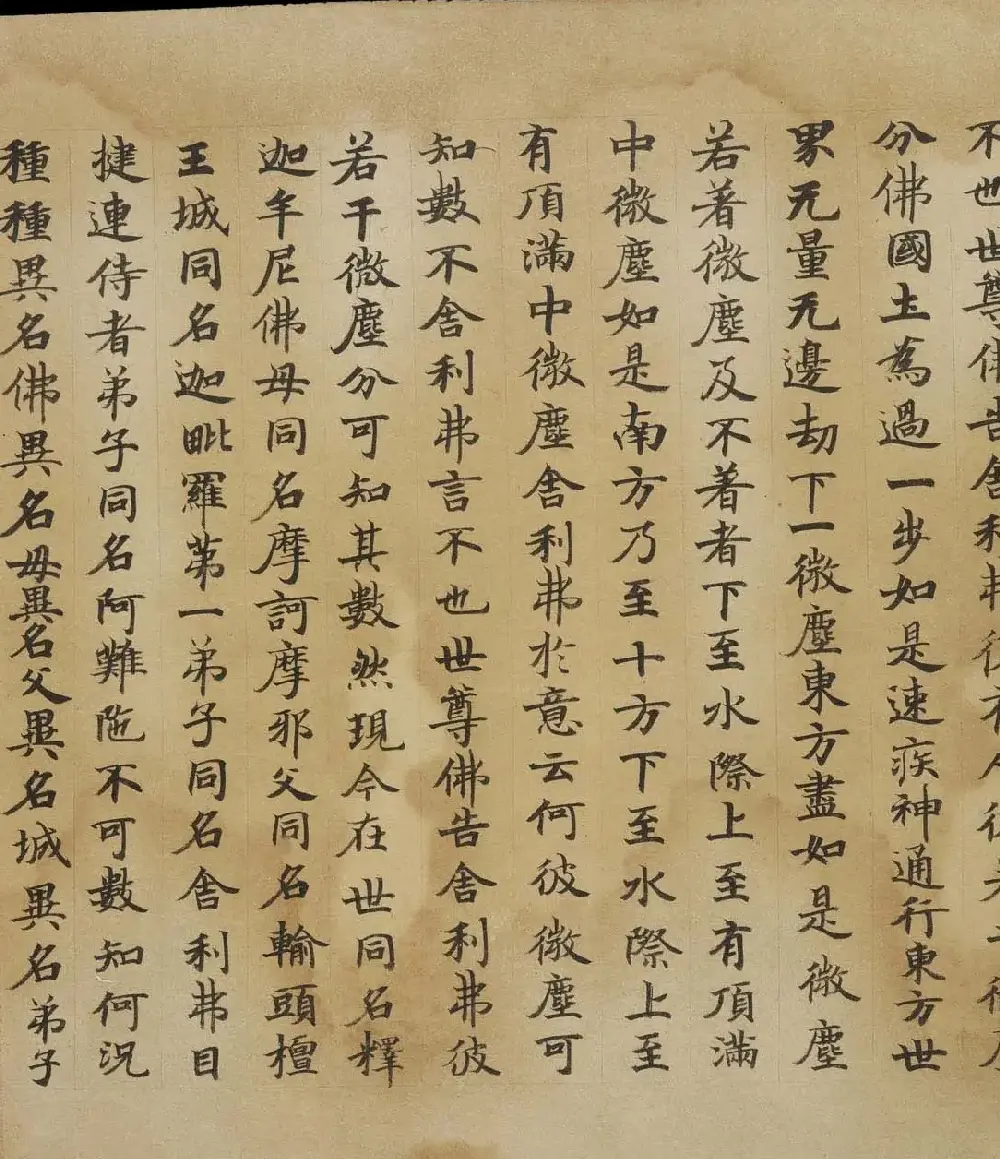 不也世尊佛告舍利弗復有人彼
分佛國土為過一步如是速疾神通行東方世
界无量无邊劫下一微塵東方盡如是微塵
若著微塵及不著者下至水際上至有頂滿
中微塵如是南方乃至十方下至水際上至
有頂滿中微塵舍利弗於意云何彼微塵可
知數不舍利弗言不也世尊佛告舍利弗彼
若干微塵分可知其數然現今在世同名釋
迦牟尼佛母同名摩訶摩邪父同名輸頭檀
王城同名迦毗羅第一弟子同名舍利弗目
揵連侍者弟子同名阿難陁不可數知何況
種種異名佛異名母異名父異名城異名弟子